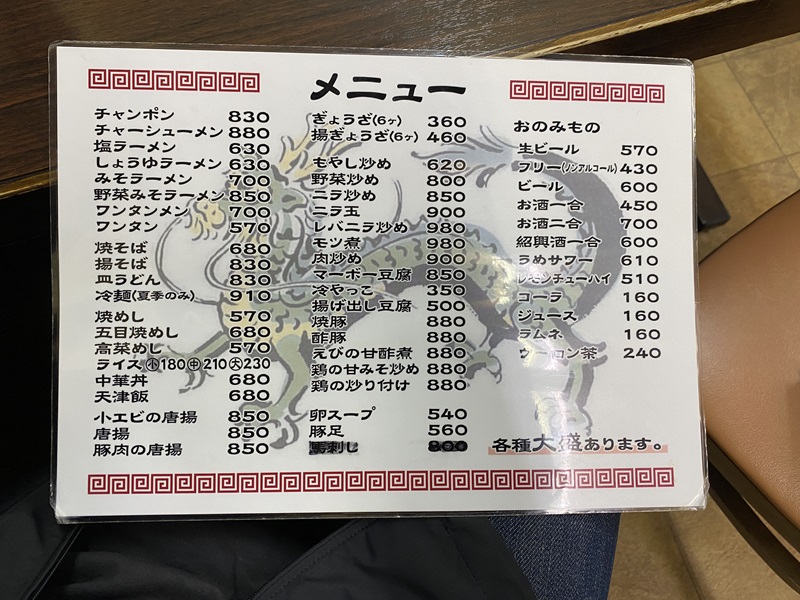 メニュー
チャンポン 830
チャーシューメン 880
塩ラーメン 630
しょうゆラーメン 630
みそラーメン 700
野菜みそラーメン 850
ワンタンメン 700
ワンタン 570
焼そば 680
揚そば 830
皿うどん 830
冷麺(夏季のみ) 910
焼めし 570
五目焼めし 680
高菜めし 570
ライス 小180 中210 大230
中華丼 680
天津飯 680
小エビの唐揚 850
唐揚 850
豚肉の唐揚 850
ぎょうざ(6ヶ) 360
揚ぎょうざ(6ヶ) 460
もやし炒め 620
野菜炒め 800
ニラ炒め 850
ニラ玉 900
レバニラ炒め 980
モツ煮 980
肉炒め 900
マーボー豆腐 850
冷やっこ 350
揚げ出し豆腐 500
焼豚 880
酢豚 880
えびの甘酢煮 880
鶏の甘みそ炒め 880
鶏の炒り付け 880
卵スープ 540
豚足 560
馬刺し 800
おのみもの
生ビール 570
フリー(ノンアルコール) 430
ビール 600
お酒一合 450
お酒二合 700
紹興酒一合 600
うめサワー 610
レモンチューハイ 510
コーラ 160
ジュース 160
ラムネ 160
ウーロン茶 240
各種大盛あります。